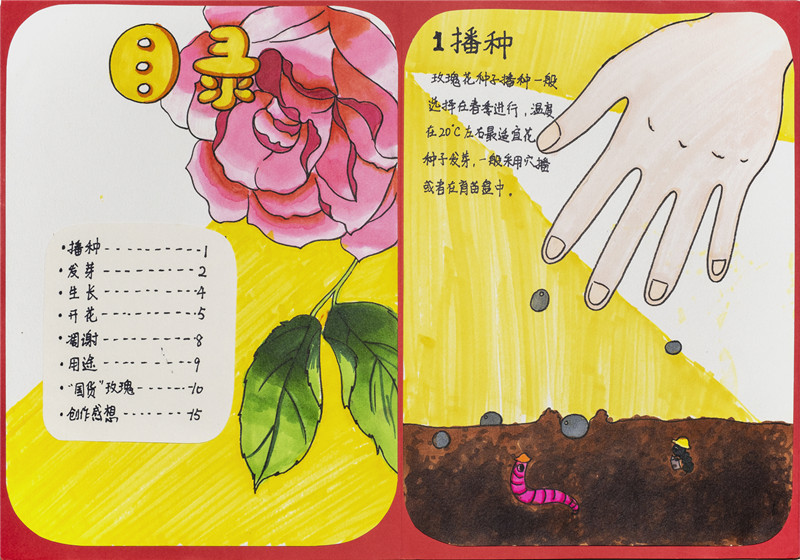 目录
·播种----------1
·发芽----------2
·生长----------4
·开花----------5
·凋谢----------8
·用途----------9
·“国货”玫瑰------10
·创作感想-------15
1 播种
玫瑰花种子播种一般
选择在春季进行，温度
在20℃左右最适宜花
种子发芽，一般采用穴播
或者在育苗盘中。